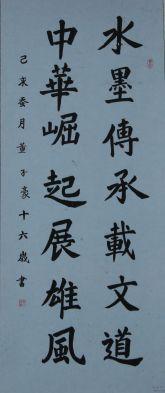 水墨傳承載文道
中華崛起展雄風
己亥季月董子豪十六歲書